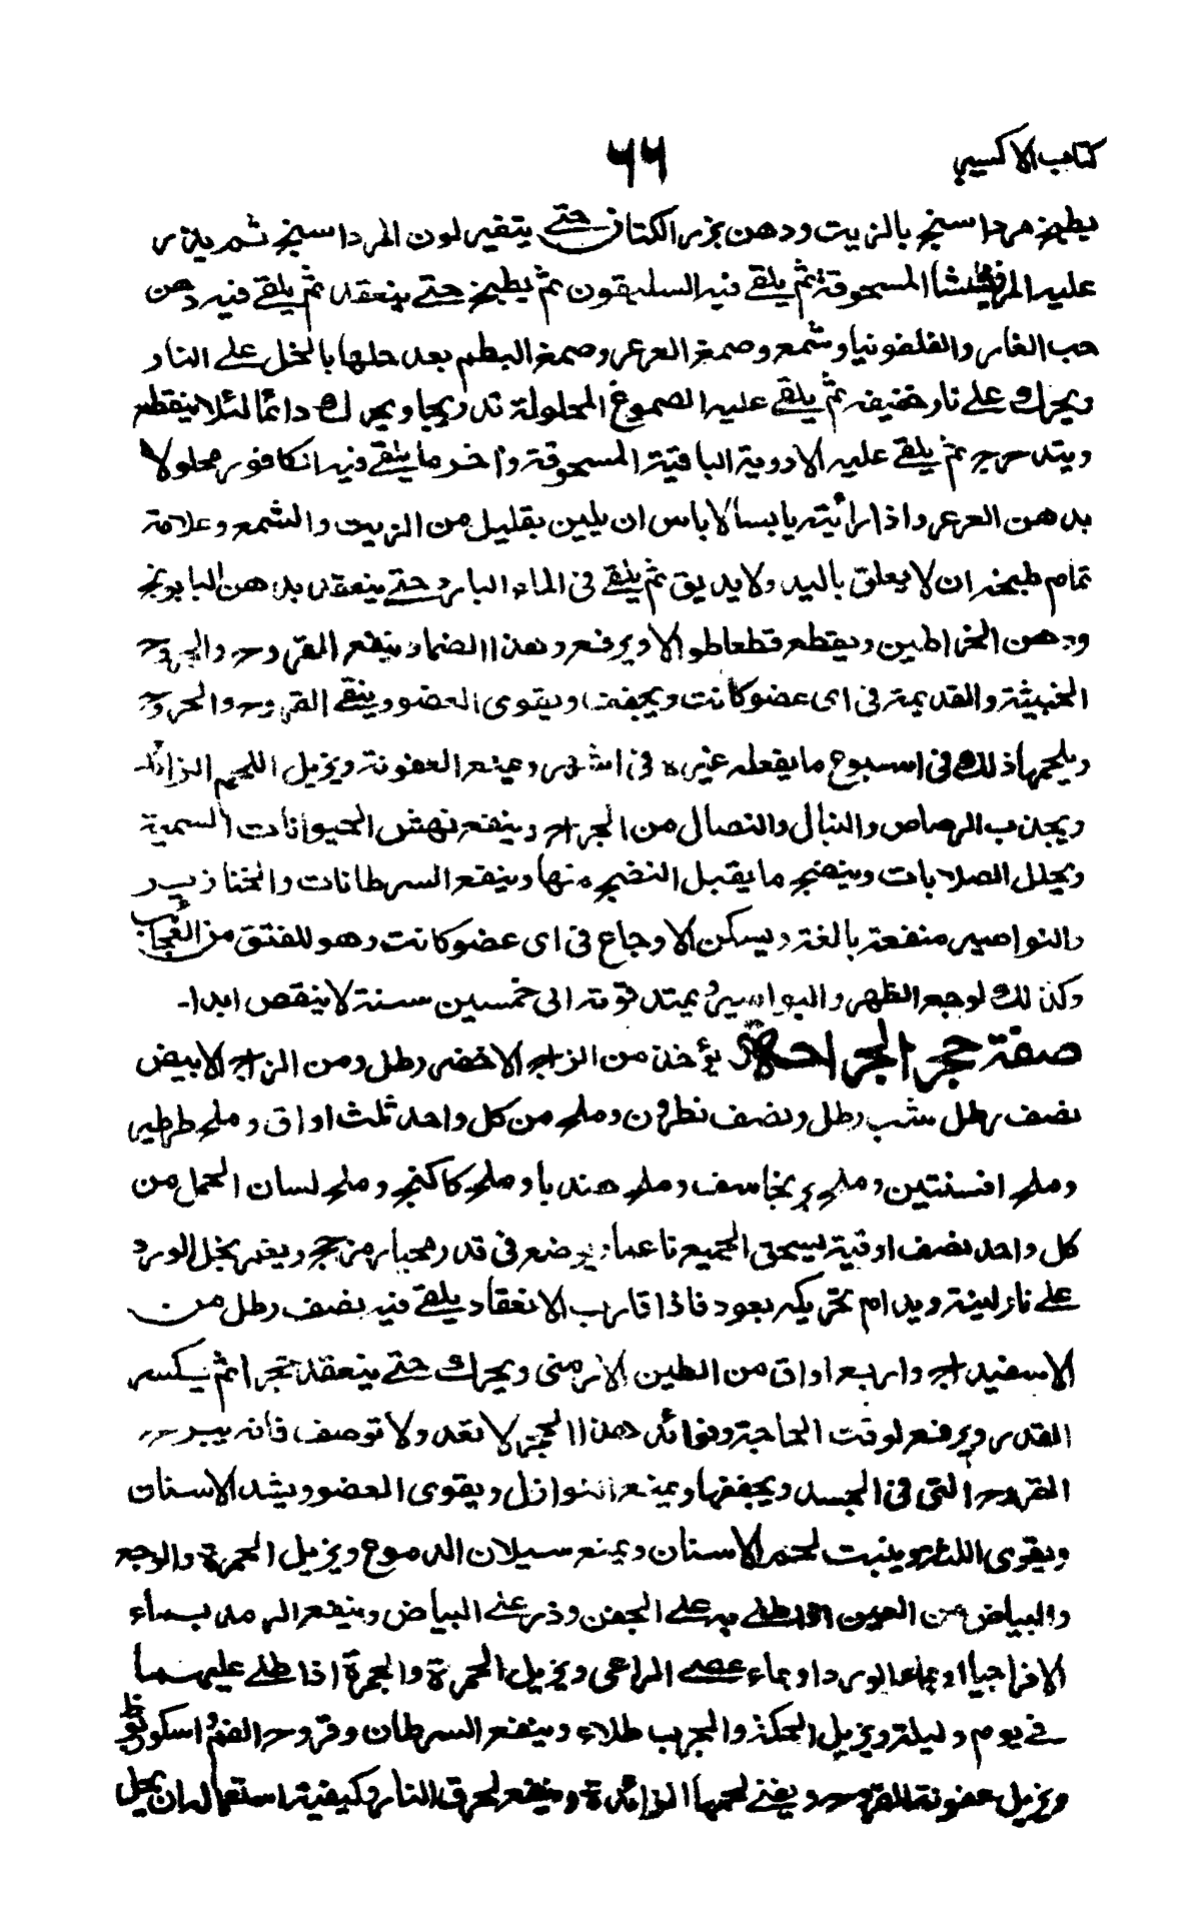 كتاب الاكسير
٦٦
يطبخ مرداسنج بالزيت ودهن بزر الكتان حتى يتغير لون المرداسنج ثم يذر
عليه المرقشيشا المسحوقة ثم يلقى فيه السليقون ثم يطبخ حتى ينعقد ثم يلقى فيه دهن
حب الغار والقلفونيا وشمع وصمغ العرعر وصمغ البطم بعد حلها بالخل على النار
ويحرك على نار خفيفه ثم يلقى عليه الصموغ المحلولة تدريجا ويحرك دائما لئلا ينقطع
ويتدحرج ثم يلقى عليه الادوية الباقية المسحوقة واخر ما يلقى فيه الكافور محلولا
بدهن العرعر واذا رأيته يابسا لا باس ان يلين بقليل من الزيت والشمع وعلامة
تمام طبخه ان لا يعلق باليد ولا يدبق ثم يلقى فى الماء البارد حتى ينعقد بدهن البابونج
ودهن الخراطين ويقطع قطعا طوالا ويرفع وهذا الضماد ينفع القروح والجروح
الخبيثة والقديمة فى اى عضو كانت ويجففها ويقوى العضو وينقى القروح والجروح
ويلحمها ذلك فى اسبوع ما يفعله غيره فى اشهر ويمنع العفونة ويزيل اللحم الزائد
ويجذب الرصاص والنبال والنصال من الجراح وينفع نهش الحيوانات السمية
ويحلل الصلابات وينضج ما يقبل النضج منها وينفع السرطانات والخنازير
والنواصير منفعة بالغة ويسكن الاوجاع فى اى عضو كانت وهو للفتق من العجائب
وكذلك لوجع الظهر والبواسير ويمتد قوته الى خمسين سنة لا ينقص ابدا
صفة حجر الجراحة يؤخذ من الزاج الاخضر رطل ومن الزاج الابيض
نصف رطل شب رطل ونصف نطرون وملح من كل واحد ثلث اواق وملح طرطير
وملح افسنتين وملح برنجاسف وملح هندبا وملح كاكنج وملح لسان الحمل من
كل واحد نصف اوقية يسحق الجميع ناعما ويوضع فى قدر فخار من حجر ويغمر بخل الورد
على نار لينة ويدام تحريكه بعود فاذا قارب الانعقاد يلقى فيه نصف رطل من
الاسفيداج واربع اواق من الطين الارمنى ويحرك حتى ينعقد حجرا ثم يكسر
القدر ويرفع لوقت الحاجة وفوائد هذا الحجر لا تعد ولا توصف فانه يبرى
القروح التى فى الجسد ويجففها ويمنع النوازل ويقوى العضو ويشد الاسنان
ويقوى اللثة وينبت لحم الاسنان ويمنع سيلان الدموع ويزيل الحمرة والوجع
والبياض من العين اذا طلى به على الجفن وذر على البياض وينفع الرمد بماء
الافراجيا او بماء الورد او بماء عصى الراعى ويزيل الحمرة والجمرة اذا طلى عليهما
فى يوم وليلة ويزيل الحكة والجرب طلاء وينفع السرطان وقروح الفم واسكوربوط
ويزيل عفونة القروح ويفنى لحمها الزائدة وينفع لحرق النار وكيفية استعماله ان يحل